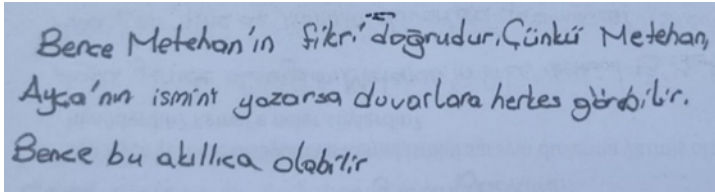 Bence Metehan'ın fikri doğrudur. Çünkü Metehan,
Ayça'nın ismini yazarsa duvarlara herkes görebilir.
Bence bu akıllıca olabilir